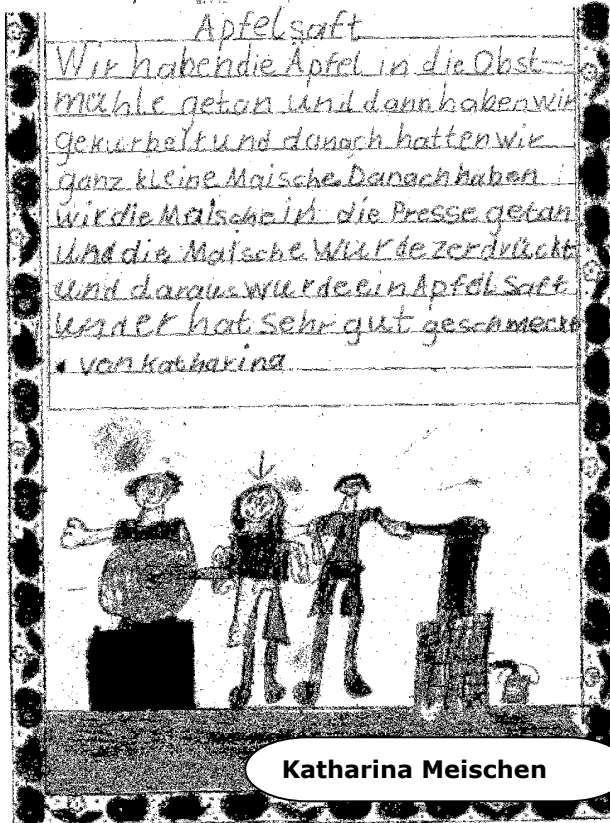 Apfelsaft
Wir habendie Äpfel in die Obst-
mühle getan und dann haben wir
gekurbelt und danach hatten wir
ganz kleine Maische Danach haben
wir die Maische in die Presse getan
und die Maische wurde zerdrückt
und daraus wurde ein Apfelsaft
under hat sehr gut geschmeckt
. von Katharina
Katharina Meischen